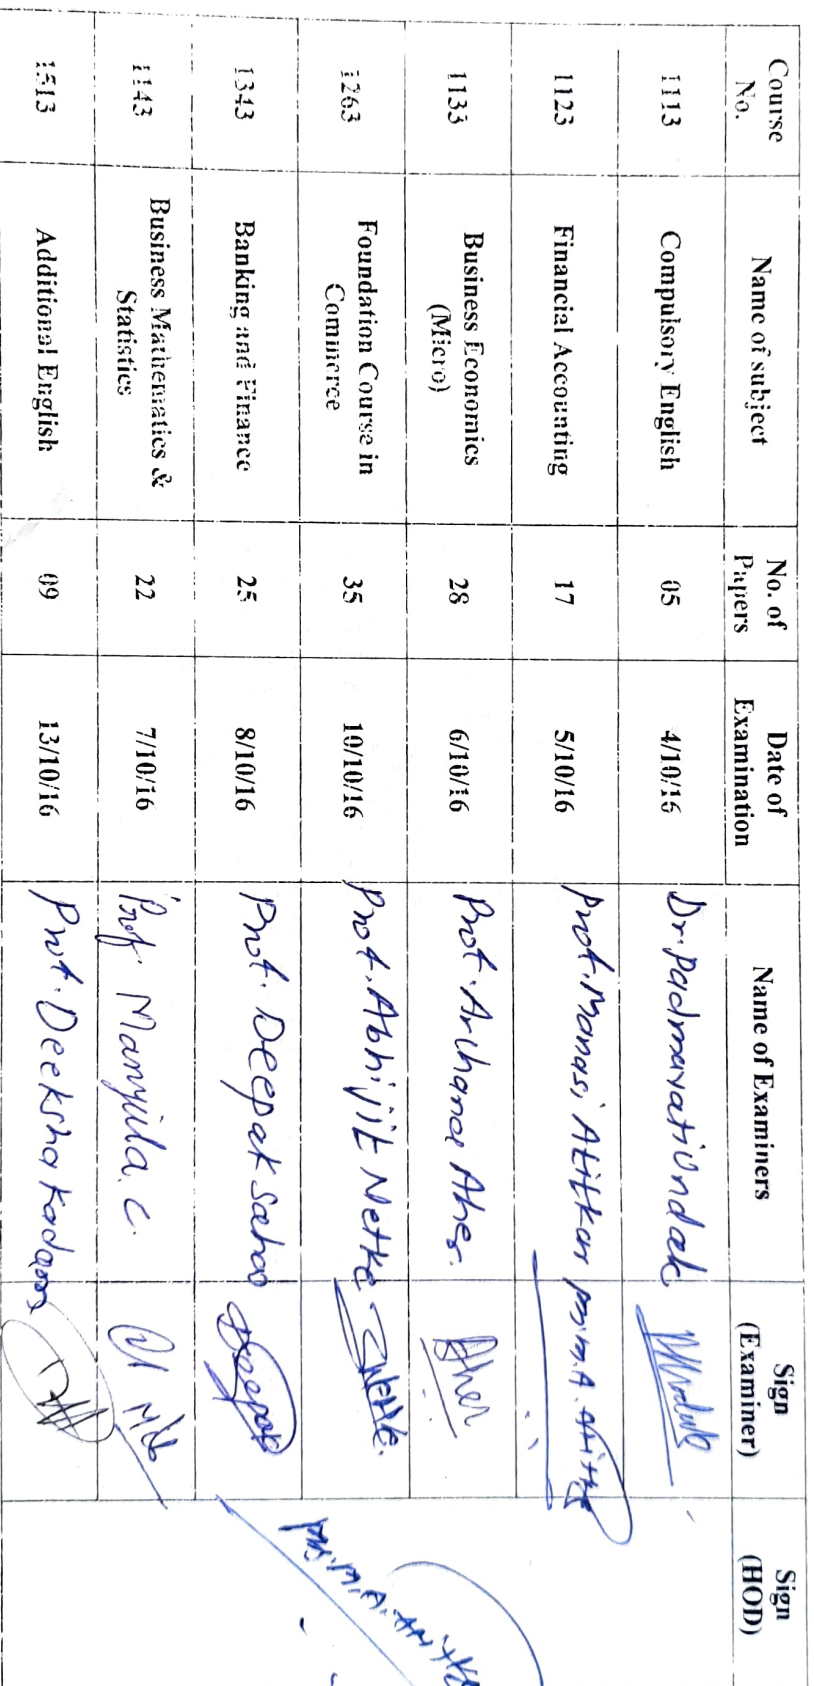 Course No. Name of subject No. of Papers Date of Examination Name of Examiners Sign (Examiner) Sign (HOD)
1113 Compulsory English 05 4/10/16 Dr. Padmavati Undale
1123 Financial Accounting 17 5/10/16 Prof. Manasi Atitkar
1133 Business Economics (Micro) 28 6/10/16 Prof. Archana Aher. Aher
1263 Foundation Course in Commerce 35 10/10/16 Prof. Abhijit Netke
1343 Banking and Finance 25 8/10/16 Prof. Deepak Sahoo Deepak
1143 Business Mathematics & Statistics 22 7/10/16 Prof. Manjula. C.
1513 Additional English 09 13/10/16 Prof. Deeksha Kadam